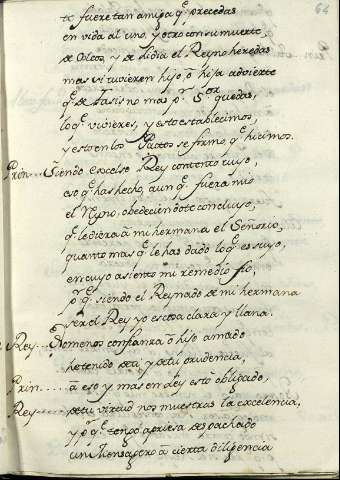 64
te fuere tan amiga q̃ precedas
en vida al uno, y otro con su muerte
de Colcos, y de Lidia el Reyno heredas
mas si tuvieren hijo, o hija advierte
q̃ de Tasis no mas p.r S.or quedas,
lo q̃ vivieres, y esto establecimos,
y esto en los Pactos se firmo q̃ hicimos.
Prin.... Siendo excelso Rey contento tuyo,
eso q̃ has hecho, aun q̃ fuera mio
el Reyno, obedeciendote concluyo,
q̃ le diera à mi hermana el Señorio,
quanto mas q̃ le has dado lo q̃ es suyo,
en cuyo asiento mi remedio fio,
p.r q̃ siendo el Reynado de mi hermana
ser el Rey yo es cosa clara y llana.
Rey... No menos confianza ò hijo amado
he tenido de ti, y de tu prudencia,
Prin.... à eso y mas en ley estò obligado,
Rey.... de tu virtud nos muestras la excelencia,
y p.r q̃ tengo apriesa despachado
un Mensagero à cierta diligencia